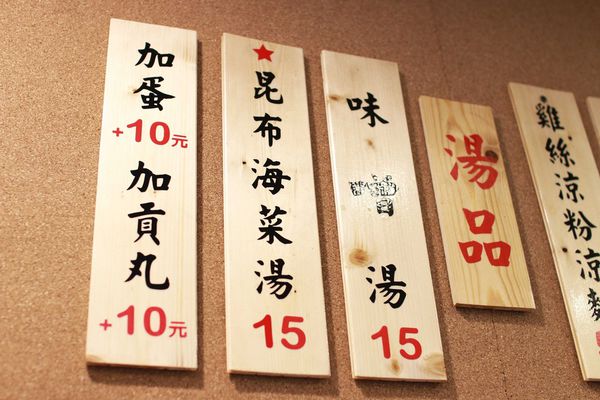 雞絲涼粉涼麵
湯品
味噌湯
15
昆布海菜湯
15
加蛋
+10元
加貢丸
+10元